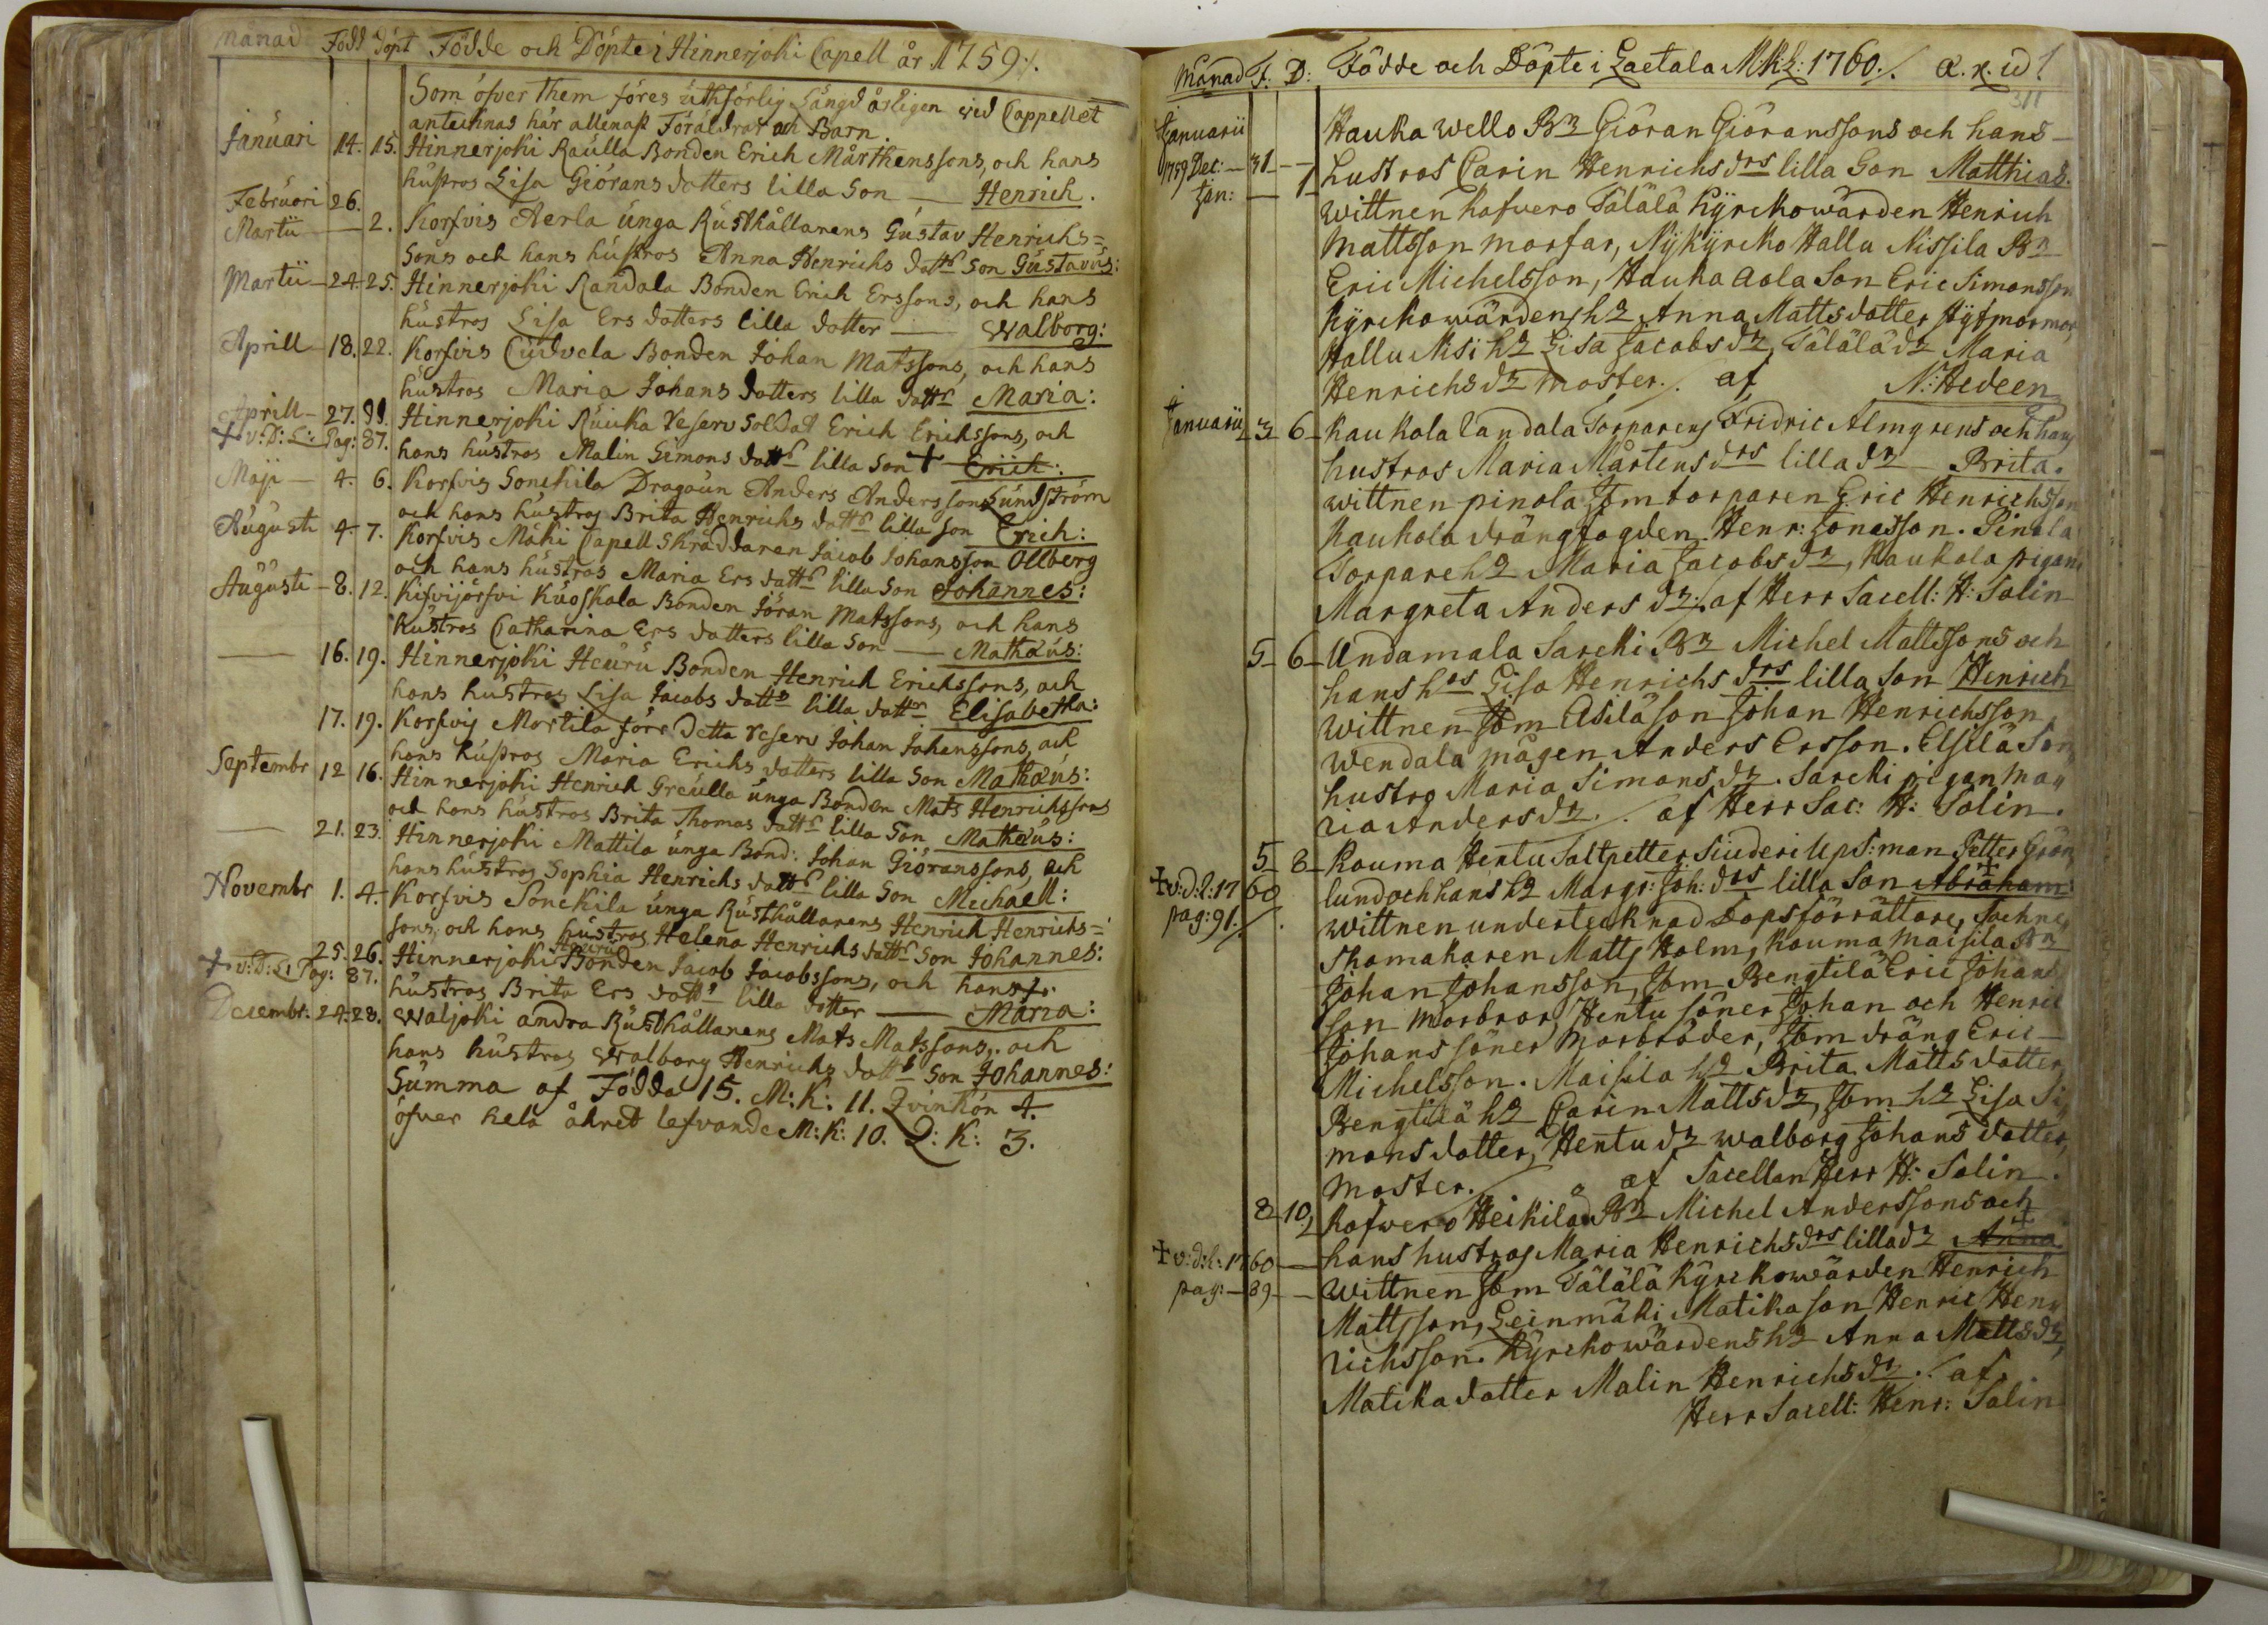 Månad Född Döpt Födde och Döpte i Hinnerjoki Capell år 1759 ./.
Som öfver them föres uthförlig Längd årligen wid Cappellet
antecknas här allenast Föräldrar och Barn.
Januari 14. 15. Hinnerjoki Raulla Bonden Erich Mårthenssons, och hans
hustros Lisa Giörans dotters lilla Son — Henrich.
Februari 26.
Martii — 2. Korfvis Aerla unga Rusthållarens Gustav Henrichs=
Sons och hans hustros Anna Henrichs dottr Son Gustavus:
Martii — 24. 25. Hinnerjoki Randala Bonden Erich Erssons, och hans
hustros Lisa Ers dotters lilla dotter — Walborg:
Aprill — 18. 22. Korfvis Cudvela Bonden Johan Matssons, och hans
hustros Maria Johans dotters lilla dottr Maria:
Aprill — 27. Hinnerjoki Ruuka reserv Soldat Erich Erichssons, och
+ v: D: L: Pag: 87. hans hustros Malin Simons dottr lilla Son + Erich:
Maji — 4. 6. Korfvis Sonckila Dragoun Anders Anderssons Lundström
och hans hustros Brita Henrichs dottr lilla Son Erich:
Augusti 4. 7. Korfvis Mäki Capell Skräddaren Jacob Johansson Ollberg
och hans hustros Maria Ers dottr lilla Son Johannes:
Augusti — 8. 12. Kifvijärfvi Kuoskala Bonden Jöran Matssons, och hans
hustros Catharina Ers dotters lilla Son — Mathæus:
— 16. 19. Hinnerjoki Heuru Bonden Henrich Erichssons, och
hans hustros Lisa Jacobs dottr lilla dottr Elisabetha:
17. 19. Korfvis Mortila förr detta reserv Johan Johanssons, och
hans hustros Maria Erichs dotters lilla Son Mathæus:
Septembr 12 16. Hinnerjoki Henrich Greulla unga Bonden Mats Henrichssons
och hans hustros Brita Thomas dottr lilla Son Mathæus:
— 21. 23. Hinnerjoki Mattila unga Bond: Johan Giöranssons, och
hans hustros Sophia Henrichs dottr lilla Son Michaell:
Novembr 1. 4. Korfvis Sonckila unga Rusthållarens Henrich Henrichs=
sons, och hans hustros Helena Henrichs dottr Son Johannes:
25. 26. Hinnerjoki Heuru Bonden Jacob Jacobssons, och hans
+ v: D: L: Pag: 87. hustros Brita Ers dottr lilla dotter — Maria:
Decembr: 24. 28. Waljoki andra Rusthållarens Mats Matssons, och
hans hustros Walborg Henrichs dottr Son Johannes:
Summa af Födda 15. M: K: 11. Qvinkön 4.
öfver hela åhret lefvande M: K: 10. Q: K: 3.
Månad F. D: Födde och Döpte i Laetala M.K.L: 1760 ./. A. R. W!
311
Januarii Hauka Wello Bn Giöran Giöranssons och hans
1759 Dec: — 31 — hustros Carin Henrichs drs lilla Son Matthias.
Jan: — 1 wittnen Kafvero Tälälä Kyrckowärden Henrich
Mattsson Morfar, Nykyrcko Hallu Nissila Bn
Eric Michelsson, Hauka Aola Son Eric Simonsson
Kyrckowärdens ho Anna Matts dotter Styfmormor
Hallu Nisi ho Lisa Jacobs dr, Tälälä dr Maria
Henrichs dr Moster ./. af N: Hedeen
Januarii 3 6 Kaukola Landala Torparens Fridric Almgrens och hans
hustros Maria Mårtens drs lilla dr Brita.
wittnen pinola Jtm torparen Eric Henrichsson
Kaukola drängfogden Henr: Jonasson. Pinola
Torpare ho Maria Jacobs dr, Kaukola pigan
Margreta Anders dr ./. af Herr Sacell: H: Salin
5 6 Undamala Sarcki Bn Michel Mattssons och
hans hos Lisa Henrichs drs lilla Son Henrich
wittnen Jtm Elsilä Son Johan Henrichsson
Wendala mågen Anders Ersson. Elsilä Son
hustro Maria Simons dr. Sarcki pigan Ma„
ria Anders dr ./. af Herr Sac: H: Salin.
5 8 Rouma Hentu Saltpetter Siuderi Ups: man Petter Grön
+ v: d: l: 17 60 lund och hans ho Margr: Joh: drs lilla Son Abraham
pag: 91 ./. wittnen undertecknad Dopsförrättare, Sochne
Skomakaren Matts Holm, Kouma Maisila Bn
Johan Johansson, Jtm Bengtilä Eric Johans
Son Morbror, Hentu Söner Johan och Henric
Johans söner Morbröder, Jtm dräng Eric
Michelsson. Maisila ho Brita Matts dotter
Bengtilä ho Carin Matts dr, Jtm ho Lisa Si„
mons dotter, Hentu dr Walborg Johans dotter,
Moster ./. af Sacellan Herr H: Salin.
8 10, Kafvero Heikilä Bn Michel Anderssons och
+ v: d: l: 17 60 — hans hustros Maria Henrichs drs lilla dr Anna
pag: — 89 — wittnen Jtm Tälälä Kyrckowärden Henrich
Mattsson, Leinmäki Matika Son Henric Hen„
richsson. Kyrckowärdens ho Anna Matts dr,
Matika dotter Malin Henrichs dr ./. af
Herr Sacell: Henr: Salin